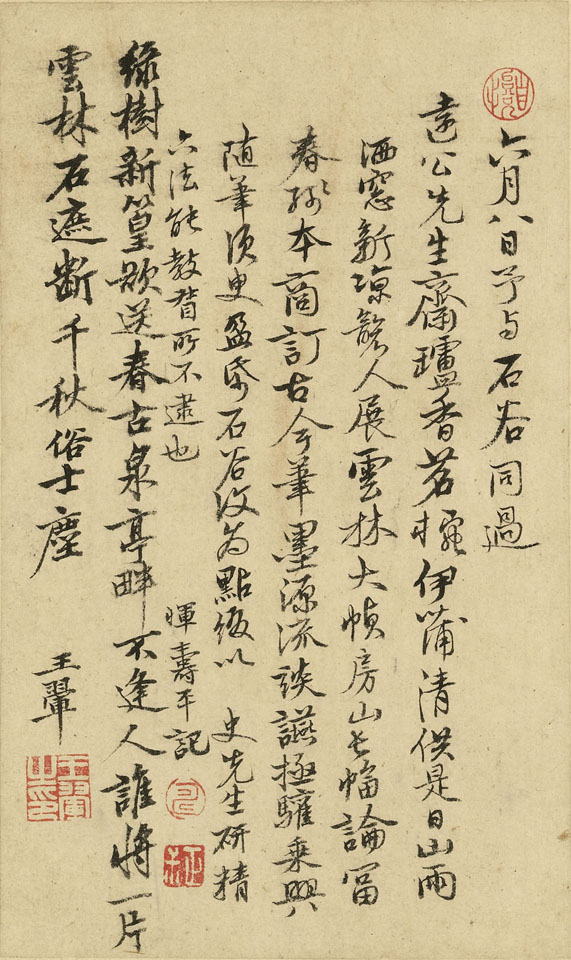 六月八日予与石谷同過
遠公先生齋壚香茗椀伊蒲清供是日山雨
洒窓新涼襲人展雲林大幀房山長幅論富
春殘本商訂古今筆墨源流談讌極驩乘興
随筆須臾盈帋石谷復為點綴以 史先生研精
六法能教督所不逮也 惲壽平記
緑樹新篁欲送春古泉亭畔不逢人誰將一片
雲林石遮斷千秋俗士塵 王翬
王翬之印